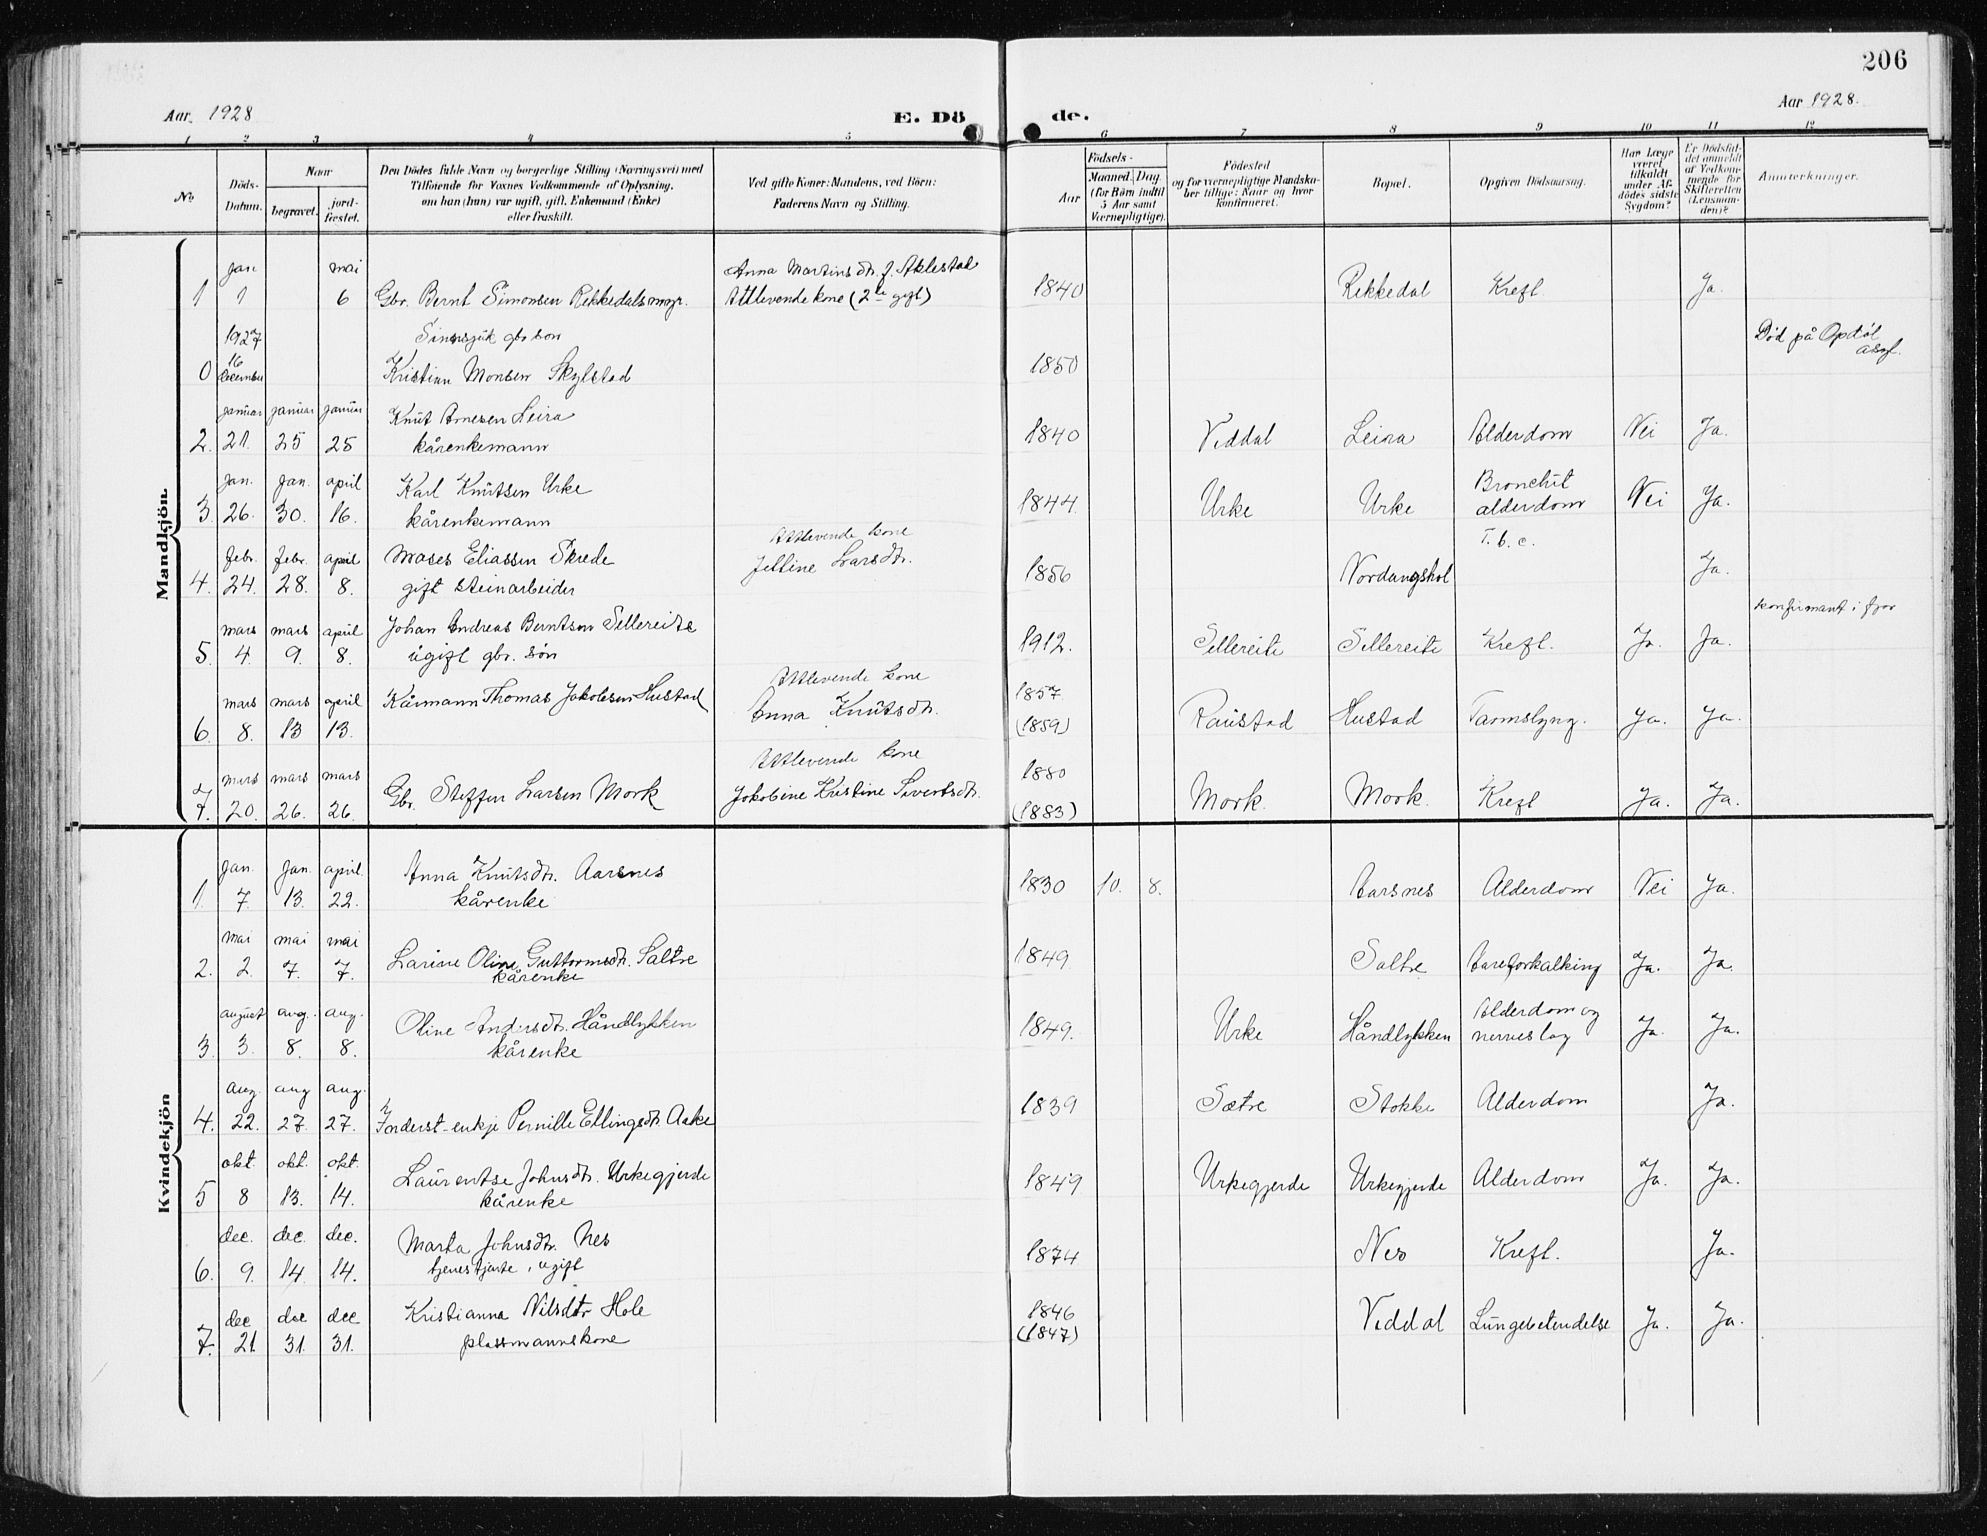 206
Aar 1928
E. Dö
de.
Aar 1928.
1 2 3 4 5 6 7 8 9 10 11 12
No
Döds-
Datum.
Naar
begravet.
jord-
fæstet.
Den Dödes fulde Navn og borgerlige Stilling (Næringsvei) med
Tilföiende for Voxnes Vedkommende af Oplysning,
om han (hun) var ugift, gift, Enkemand (Enke)
eller fraskilt.
Ved gifte Koner: Mandens, ved Börn:
Faderens Navn og Stilling.
Födsels-
Aar
Maaned. Dag
(for Börn indtil
5 Aar samt
Værnepligtige).
Födested
og for værnepligtige Mandska-
ber tillige: Naar og hvor
konfirmeret.
Bopæl.
Opgiven Dödsaarsag.
Har Læge
været
tilkaldt
under Af-
dödes sidste
Sygdom?
Er Dödsfal-
det anmeldt
af Vedkom-
mende for
Skifteretten
(Lensman-
den)?
Anmerkninger.
Mandkjön.
jan mai Anna Martinsdtr. f. Aklestad
1 1 6 Gbr. Bernt Simonsen Rekkedalsmyr. Attlevende kone (2de gift) 1840 Rekkedal Kreft Ja.
1927 Sinnsjuk gbr son Död på Opdöl asyl.
0 16 december Kristian Monsen Skylstad 1850
januar januar januar Knut Arnesen Leira
2. 21. 25 25 kårenkemann 1840 Viddal Leira Alderdom Nei Ja.
jan. jan. april Karl Knutsen Urke Bronchit
3. 26. 30. 16. kårenkemann 1844 Urke Urke alderdom Nei Ja.
febr. febr. april Moses Eliassen Skrede Attlevende kone T.b.c.
4. 24. 28. 8. gift steinarbeider Jelline Larsdtr. 1856 Nordangshol Ja.
mars mars april Johan Andreas Berntsen Sellereite konfirmant i fjor
5. 4. 9. 8. ugift gbr. sön 1912. Sellereite Sellereite Kreft. Ja. Ja.
mars mars april Kårmann Thomas Jakobsen Hustad Attlevende kone 1857
6. 8. 13 13. Anna Knutsdtr. (1859) Raustad Hustad Tarmslyng. Ja. Ja.
mars mars mars Attlevende kone 1880
7. 20. 26. 26. Gbr. Steffen Larsen Mork Jakobine Kristine Sivertsdtr. (1883) Mork. Mork. Kreft Ja. Ja.
Kvindekjön
jan. jan. april. Anna Knutsdtr. Aarsnes
1. 7. 13. 22. kårenke 1830 10. 8. Aarsnes Alderdom Nei Ja.
mai mai mai
2. 2. 7. 7. Larine Oline Guttormsdtr. Saltre 1849 Saltre Aareforkalking Ja. Ja.
kårenke
august aug. aug. Oline Andersdtr. Håndlykken Alderdom og
3. 3. 8. 8. kårenke 1849. Urke Håndlykken nerveslag Ja. Ja.
aug. aug aug.
4. 22. 27. 27. Inderst-enkje Pernille Ellingsdtr. Aake 1839 Sætre Stokke Alderdom Ja.
okt. okt. okt. Laurentse Johnsdtr. Urkegjerde
5 8 13. 14. kårenke 1849 Urkegjerde Urkegjerde Alderdom Ja. Ja.
dec. dec. dec. Marta Johnsdtr. Nes
6. 9. 14 14. tjenestjente, ugift 1874 Nes Kreft. Ja.
dec dec dec Kristianna Nilsdtr Hole 1846
7. 21. 31. 31. plassmannskone (1847) Viddal Lungebetendelse Ja. Ja.